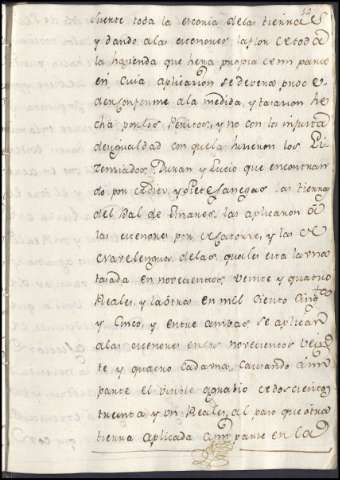 fuente toda la escoria de las tierras
y dando a las menores la flor de toda
la hacienda que hera propia de mi parte
en cuia aplicazion se devera proze
der conforme a la medida, y tasazion he
cha por los Peritos, y no con la injusta
desigualdad con que la hizieron los Li
zenziados Duran y Lucio que encontran
do por
las tierras
del Bal de Linares, las aplicaron â
las menores por
y las de
de las quales esta la una
tasada en novecientos, veinte y quatro
Reales, y la otra en mil ciento cinqta
y cinco, y entre ambas se aplican
a las menores en los novecientos vein
te y quatro cada una, causando â mi
parte el
agravio de doscientos
treinta y un Reales, al paso que otra
tierra aplicada â mi parte en la